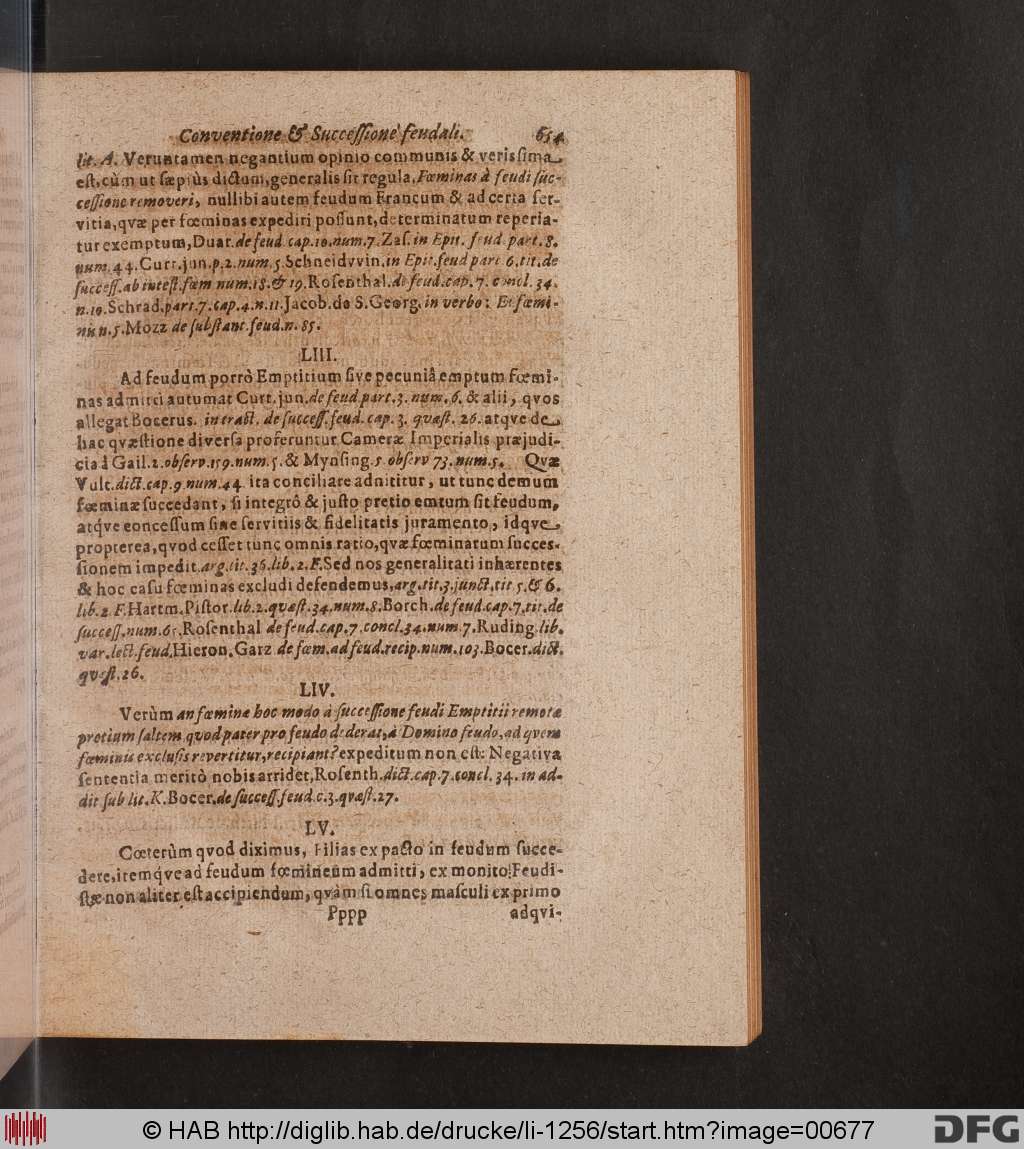 Conventione & Successione feudali. 654
lit. A. Veruntamen negantium opinio communis & verissima
est, cùm ut sæpiùs dictum, generalis sit regula, Fœminas à feudi suc-
cessione removeri, nullibi autem feudum Francum & ad certa ser-
vitia, qvæ per fœminas expediri possunt, determinatum reperia-
tur exemptum, Duar. de feud. cap. 10. num. 7. Zas. in Epit. feud. part. 8.
num. 44. Curt. jun. p. 2. num. 5. Schneidvvin. in Epit. feud part. 6. tit. de
success. ab intest. fœm num. 18. & 19. Rosenthal. de feud. cap. 7. concl. 34.
n. 10. Schrad. part. 7. cap. 4. n. 11. Jacob. de S. Georg. in verbo: Et fœmi-
nis n. 5. Mozz de substant. feud. n. 85.
LIII.
Ad feudum porrò Emptitium sive pecuniâ emptum fœmi-
nas admitti autumat Curt. jun. de feud. part. 3. num. 6. & alii, qvos
allegat Bocerus. in tract. de success. feud. cap. 3. quæst. 26. atqve de
hac qvæstione diversa proferuntur Cameræ Imperialis præjudi-
cia à Gail. 2. observ. 159. num. 5. & Mynsing. 5 observ 73. num. 5. Qvæ
Vult. dict. cap. 9 num. 44. ita conciliare adnititur, ut tunc demum
fœminæ succedant, si integrô & justo pretio emtum sit feudum,
atqve concessum sine servitiis & fidelitatis juramento, idqve
propterea, qvod cesset tunc omnis ratio, qvæ fœminatum succes-
sionem impedit. arg. tit. 36. lib. 2. F. Sed nos generalitati inhærentes
& hoc casu fœminas excludi defendemus, arg. tit. 3. junct. tit. 5. & 6.
lib. 2 F. Hartm. Pistor. lib. 2. quæst. 34. num. 8. Borch. de feud. cap. 7. tit. de
success. num. 65. Rosenthal de feud. cap. 7. concl. 34. num. 7. Ruding. lib.
var. lect. feud. Hieron. Garz de fœm. ad feud. recip. num. 103. Bocer. dict.
quæst. 26.
LIV.
Verùm an fœminæ hoc modo à successione feudi Emptitii remotæ
pretium saltem quod pater pro feudo dederat, à Domino feudo, ad quem
fœminis exclusis revertitur, recipiant? expeditum non est: Negativa
sententia meritò nobis arridet, Rosenth. dict. cap. 7. concl. 34. in ad-
dit sub lit. K. Bocer. de success. feud. c. 3. quæst. 27.
LV.
Cœterùm qvod diximus, Filias ex pacto in feudum succe-
dere, itemq́ve ad feudum fœmineum admitti, ex monito Feudi-
stæ non aliter est accipiendum, qvàm si omnes masculi ex primo
Pppp adqvi-
© HAB http://diglib.hab.de/drucke/li-1256/start.htm?image=00677
DFG